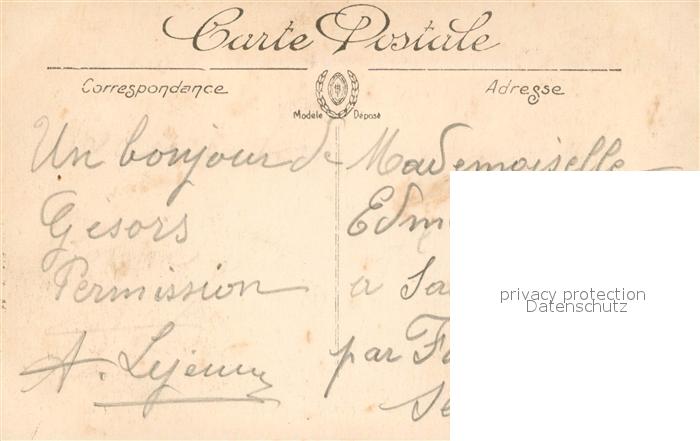 Carte Postale
Correspondance
Adresse
Modèle Déposé
Un bonjour de
Gesors
Permission
A. Lejeune
Mademoiselle
a
par
privacy protection
Datenschutz